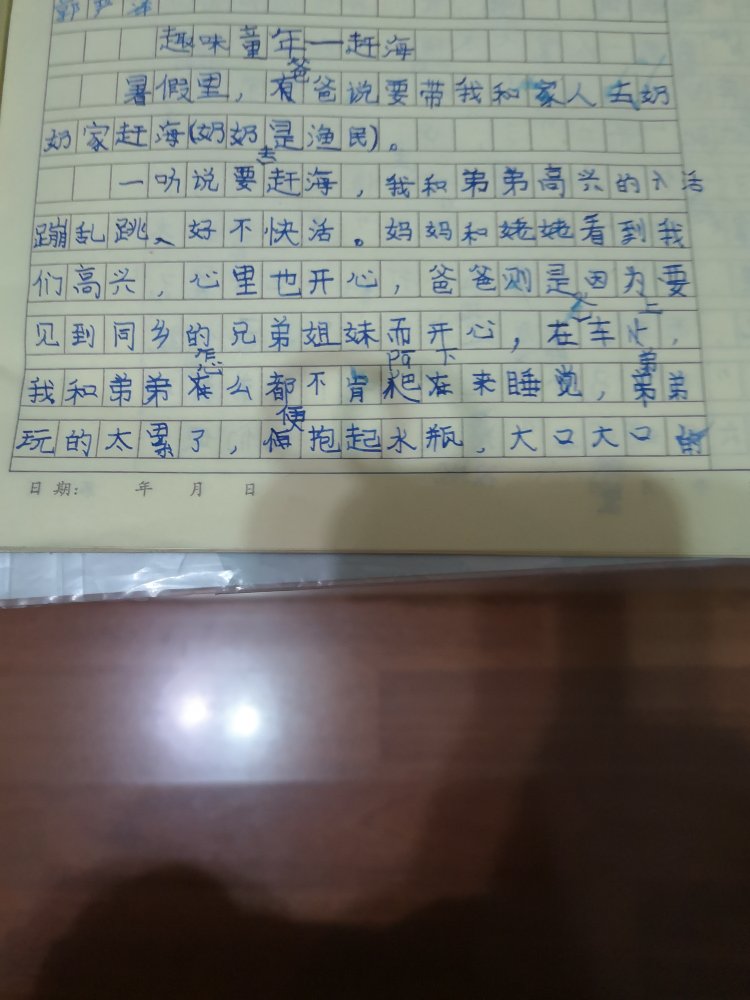 趣味童年—赶海
暑假里，爸爸说要带我和家人去奶
奶家赶海(奶奶是渔民)。
一听说要去赶海，我和弟弟高兴的活
蹦乱跳、好不快活。妈妈和姥姥看到我
们高兴，心里也开心，爸爸则是因为要
见到同乡的兄弟姐妹而开心，在车上，
我和弟弟怎么都不肯趴下来睡觉，弟弟
玩的太累了，便抱起水瓶，大口大口
日期： 年 月 日